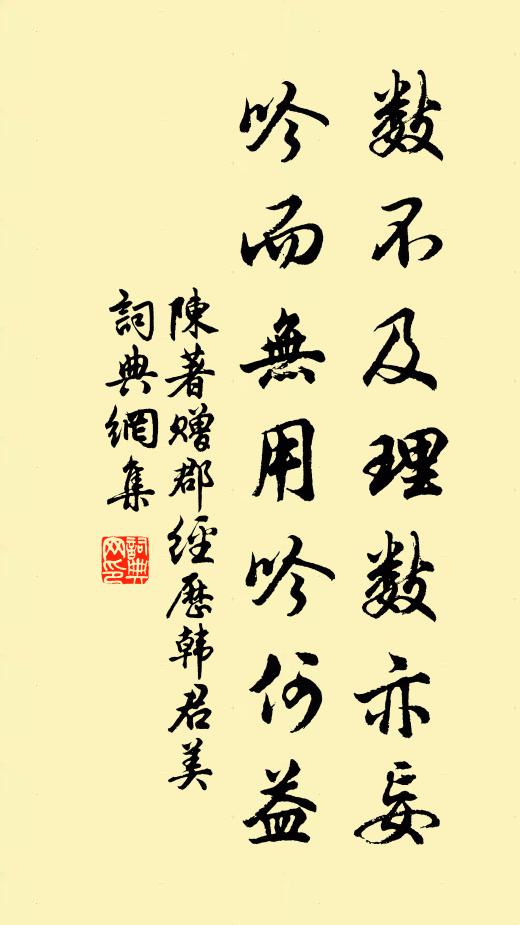 数不及理数亦妄
吟而無用吟何益
陳著赠郡經歷韩君美
詞典網集
詞典
网印